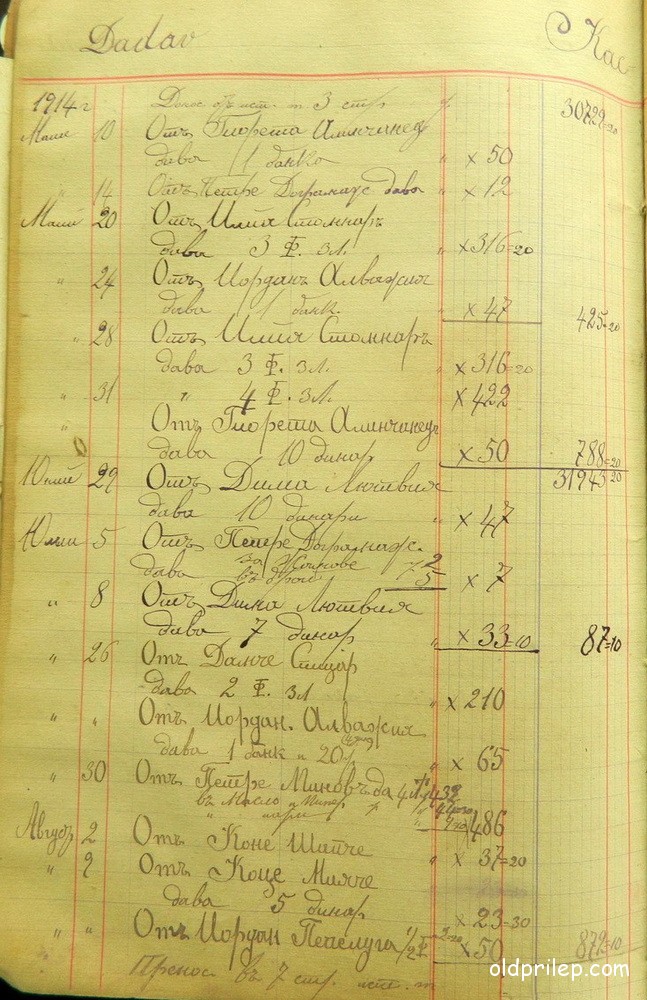 Dadav Кас
1914 г 3 стр 30729=20
Маии 10 Отъ Глорета
дава 1 банка " × 50
" 14 Отъ Петре дава " × 12
Маии 20 Отъ Илия Стомнаръ
дава 3 Ф. зл. " × 316=20
" 24 Отъ Йорданъ Алважия
дава 1 банк. " × 47 425=20
" 28 Отъ Илия Стомнаръ
дава 3 Ф. зл. " × 316=20
" 31 " 4 Ф. зл. × 422
" Отъ Глорета
дава 10 динар × 50 788=20
29 Отъ Дима Лютвия 31943=20
дава 10 динари " × 47
Юлии 5 Отъ Петре
дава 7 2
5 × 7
" 8 Отъ Дима Лютвия
дава 7 динар " × 33=10 87=10
" 26 Отъ Далче
дава 2 Ф. зл " × 210
" " Отъ Йордан. Алважия
дава 1 банк " 20 " × 65
" 30 Отъ Петре Миновъ да 4 432
въ Масло
486
Август 2 Отъ Коне Шайче " × 37=20
" 9 Отъ Коце Мияче
дава 5 динар × 23=30
" " Отъ Йордан Пепелуга 1/2 Ф × 50 872=10
Пренос въ 7 стр.
oldprilep.com